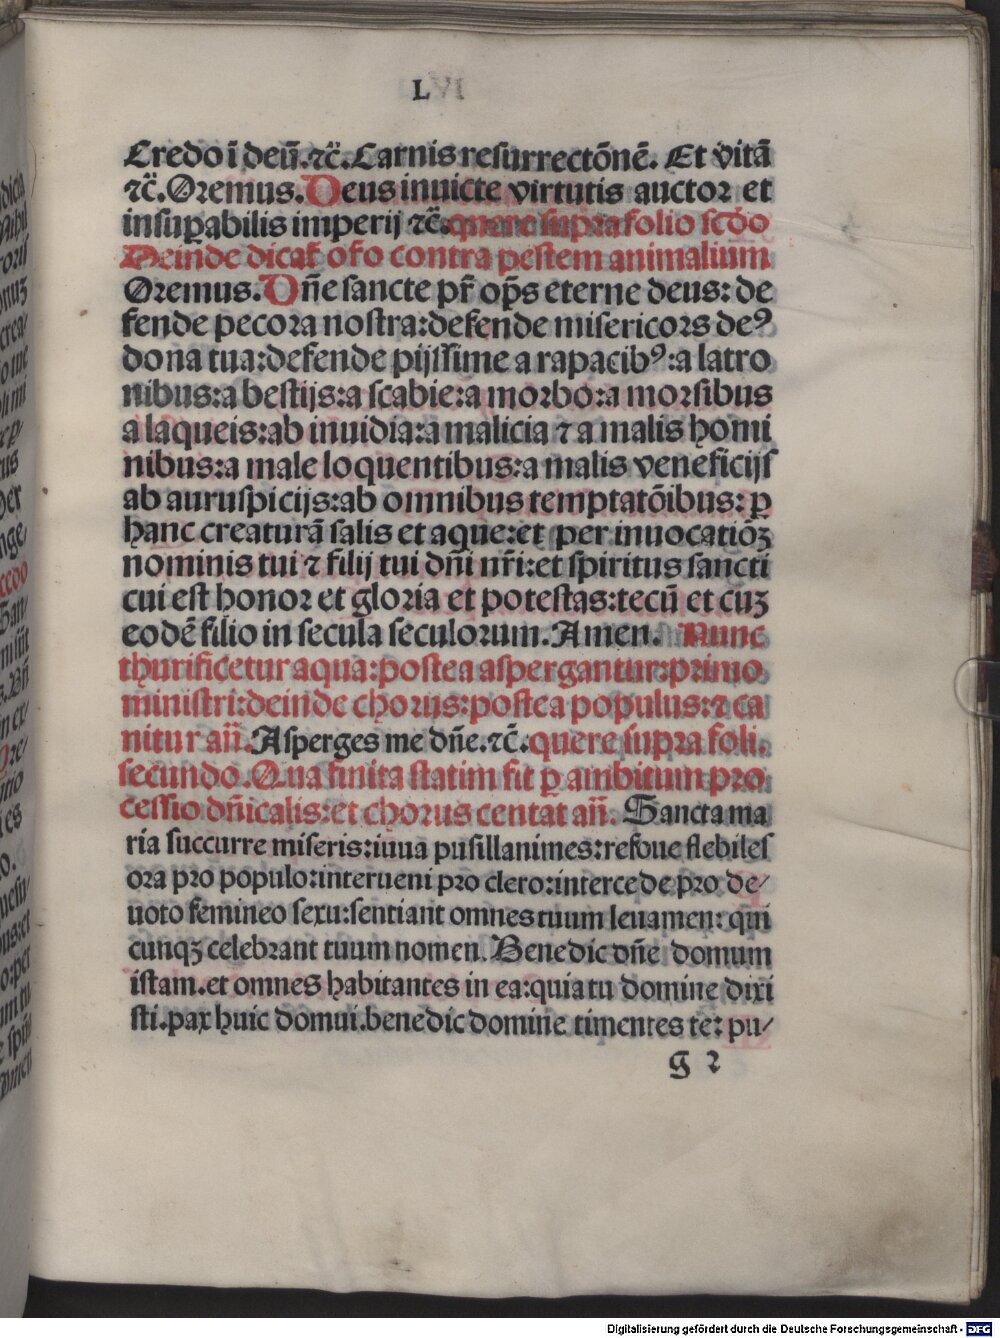 LVI
Credo ī deū.⁊c̄.Carnis resurrectōnē. Et vitā
⁊c̄.Oremus.Deus inuicte virtutis auctor et
insuꝑabilis imperij ⁊c̄.quere supra folio scd̄o
Deinde dicat̄ oſo contra pestem animalium
Oremus.Dn̄e sancte pr̄ opſ̄s eterne deus: de
fende pecora nostra:defende misericors deꝰ
dona tua:defende pijssime a rapacibꝰ:a latro
nibus:a bestijs:a scabie:a morbo:a morsibus
a laqueis:ab inuidia:a malicia ⁊ a malis homi
nibus:a male loquentibus:a malis veneficijs
ab auruspicijs:ab omnibus temptatōibus: ꝑ
hanc creaturā salis et aque:et per inuocatiōꝫ
nominis tui ⁊ filij tui dn̄i nr̄i:et spiritus sancti
cui est honor et gloria et potestas:tecū et cuꝫ
eodē filio in secula seculorum.Amen. Nunc
thurificetur aqua:postea aspergantur:primo
ministri:deinde chorus:postea populus:⁊ ca
nitur an̄.Asperges me dn̄e.⁊c̄.quere supra foli.
secundo.Qua finita statim fit ꝑ ambitum pro
cessio dn̄icalis:et chorus centat an̄. Sancta ma
ria succurre miseris:iuua pusillanimes:refoue flebiles
ora pro populo:interueni pro clero:intercede pro de/
uoto femineo sexu:sentiant omnes tuum leuamen: qui
cunqꝫ celebrant tuum nomen. Benedic dn̄e domum
istam.et omnes habitantes in ea:quia tu domine dixi
sti.pax huic domui.benedic domine timentes te: pu/
g 2
Digitalisierung gefördert durch die Deutsche Forschungsgemeinschaft - DFG